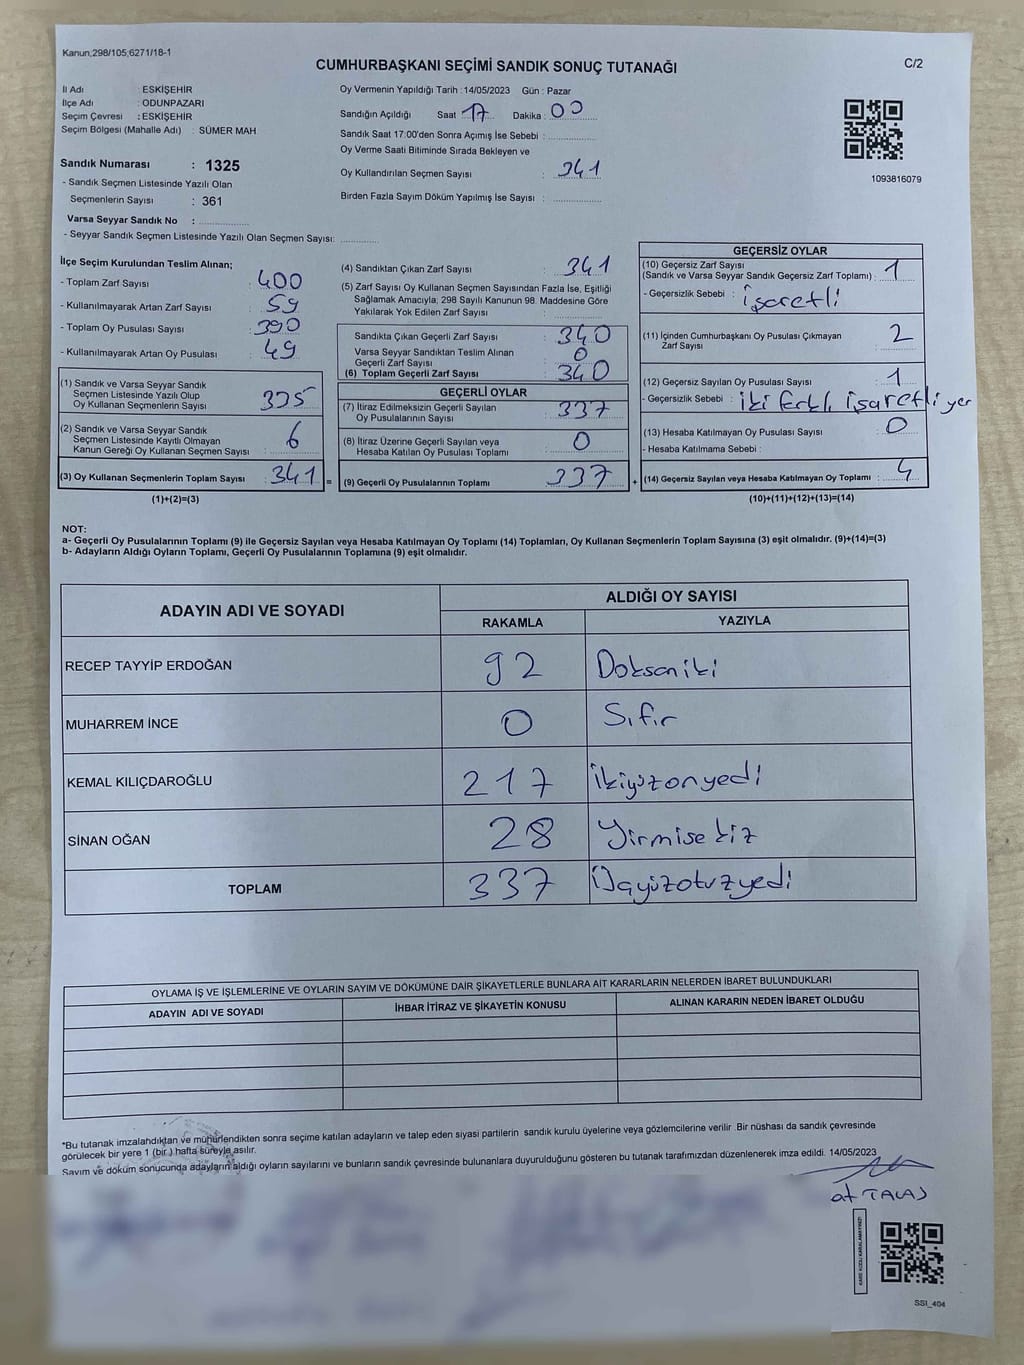 Kanun,298/105,6271/18-1
CUMHURBAŞKANI SEÇİMİ SANDIK SONUÇ TUTANAĞI
C/2
İl Adı : ESKİŞEHİR
İlçe Adı : ODUNPAZARI
Seçim Çevresi : ESKİŞEHİR
Seçim Bölgesi (Mahalle Adı) : SÜMER MAH
Sandık Numarası : 1325
- Sandık Seçmen Listesinde Yazılı Olan
Seçmenlerin Sayısı : 361
Varsa Seyyar Sandık No :
- Seyyar Sandık Seçmen Listesinde Yazılı Olan Seçmen Sayısı:
Oy Vermenin Yapıldığı Tarih :14/05/2023 Gün : Pazar
Sandığın Açıldığı Saat 17 Dakika : 00
Sandık Saat 17:00'den Sonra Açımış İse Sebebi :
Oy Verme Saati Bitiminde Sırada Bekleyen ve
Oy Kullandırılan Seçmen Sayısı : 341
Birden Fazla Sayım Döküm Yapılmış İse Sayısı :
1093816079
İlçe Seçim Kurulundan Teslim Alınan;
- Toplam Zarf Sayısı : 400
- Kullanılmayarak Artan Zarf Sayısı : 59
- Toplam Oy Pusulası Sayısı : 390
- Kullanılmayarak Artan Oy Pusulası : 49
(1) Sandık ve Varsa Seyyar Sandık
Seçmen Listesinde Yazılı Olup
Oy Kullanan Seçmenlerin Sayısı : 335
(2) Sandık ve Varsa Seyyar Sandık
Seçmen Listesinde Kayıtlı Olmayan
Kanun Gereği Oy Kullanan Seçmen Sayısı : 6
(3) Oy Kullanan Seçmenlerin Toplam Sayısı : 341 =
(1)+(2)=(3)
(4) Sandıktan Çıkan Zarf Sayısı : 341
(5) Zarf Sayısı Oy Kullanan Seçmen Sayısından Fazla İse, Eşitliği
Sağlamak Amacıyla, 298 Sayılı Kanunun 98. Maddesine Göre
Yakılarak Yok Edilen Zarf Sayısı :
Sandıkta Çıkan Geçerli Zarf Sayısı : 340
Varsa Seyyar Sandıktan Teslim Alınan
Geçerli Zarf Sayısı : 0
(6) Toplam Geçerli Zarf Sayısı : 340
GEÇERLİ OYLAR
(7) İtiraz Edilmeksizin Geçerli Sayılan
Oy Pusulalarının Sayısı : 337
(8) İtiraz Üzerine Geçerli Sayılan veya
Hesaba Katılan Oy Pusulası Toplamı : 0
(9) Geçerli Oy Pusulalarının Toplamı : 337 +
GEÇERSİZ OYLAR
(10) Geçersiz Zarf Sayısı
(Sandık ve Varsa Seyyar Sandık Geçersiz Zarf Toplamı) : 1
- Geçersizlik Sebebi : işaretli
(11) İçinden Cumhurbaşkanı Oy Pusulası Çıkmayan
Zarf Sayısı : 2
(12) Geçersiz Sayılan Oy Pusulası Sayısı : 1
- Geçersizlik Sebebi : iki farklı işaretli yer
(13) Hesaba Katılmayan Oy Pusulası Sayısı : 0
- Hesaba Katılmama Sebebi :
(14) Geçersiz Sayılan veya Hesaba Katılmayan Oy Toplamı : 4
(10)+(11)+(12)+(13)=(14)
NOT:
a- Geçerli Oy Pusulalarının Toplamı (9) ile Geçersiz Sayılan veya Hesaba Katılmayan Oy Toplamı (14) Toplamları, Oy Kullanan Seçmenlerin Toplam Sayısına (3) eşit olmalıdır. (9)+(14)=(3)
b- Adayların Aldığı Oyların Toplamı, Geçerli Oy Pusulalarının Toplamına (9) eşit olmalıdır.
ADAYIN ADI VE SOYADI
ALDIĞI OY SAYISI
RAKAMLA YAZIYLA
RECEP TAYYİP ERDOĞAN 92 Doksaniki
MUHARREM İNCE 0 Sıfır
KEMAL KILIÇDAROĞLU 217 İkiyüzonyedi
SİNAN OĞAN 28 Yirmisekiz
TOPLAM 337 Üçyüzotuzyedi
OYLAMA İŞ VE İŞLEMLERİNE VE OYLARIN SAYIM VE DÖKÜMÜNE DAİR ŞİKAYETLERLE BUNLARA AİT KARARLARIN NELERDEN İBARET BULUNDUKLARI
ADAYIN ADI VE SOYADI İHBAR İTİRAZ VE ŞİKAYETİN KONUSU ALINAN KARARIN NEDEN İBARET OLDUĞU
*Bu tutanak imzalandıktan ve mühürlendikten sonra seçime katılan adayların ve talep eden siyasi partilerin sandık kurulu üyelerine veya gözlemcilerine verilir Bir nüshası da sandık çevresinde
görülecek bir yere 1 (bir ) hafta süreyle asılır.
Sayım ve döküm sonucunda adayların aldığı oyların sayılarını ve bunların sandık çevresinde bulunanlara duyurulduğunu gösteren bu tutanak tarafımızdan düzenlenerek imza edildi. 14/05/2023
TALAŞ
KARE KODU KARALAMAYINIZ!
SSI_404